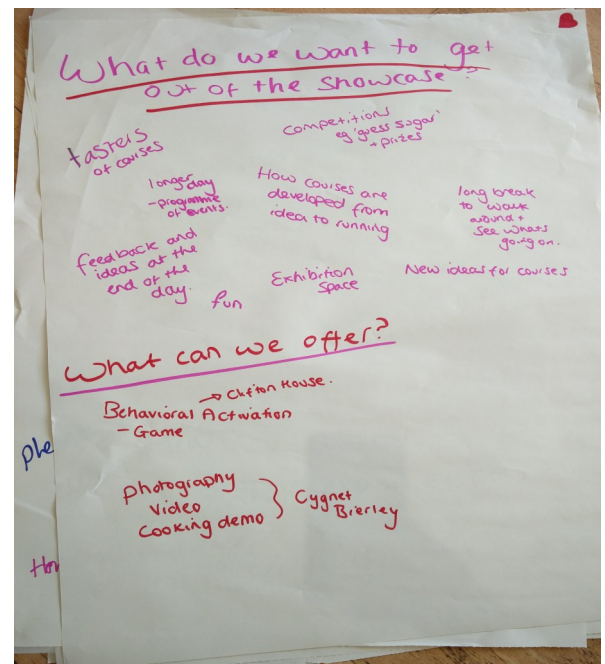 What do we want to get
out of the showcase?
tasters
of courses
Competitions
eg 'guess sugar'
+ prizes
longer day
- programme
of events.
How courses are
developed from
idea to running
long break
to walk
around +
see whats
going on.
feedback and
ideas at the
end of the
day.
fun
Exhibition
Space
New ideas for courses
What can we offer?
→ Clifton House.
Behavioral Activation
- Game
photography
video
cooking demo
Cygnet
Bierley